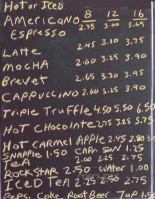 Hot or Iced 8 12 16
Americano 2.75 3.00 3.65
Espresso
Latte 2.45 3.10 3.75
Mocha 2.60 3.25 3.90
Brevet 2.65 3.30 3.95
Cappuccino 2.60 3.25 3.90
Triple Truffle 4.50 5.50 6.50
Hot Chocolate 2.75 3.25 3.75
Hot Carmel Apple 2.75 2.80
Snapple 1.50 Capri Sun 1.25
Tea 2.00 2.25 2.75
Rockstar 2.50 Water 1.00
Iced Tea 2.25 2.50 2.75
Pepsi, Coke, Root Beer 7up